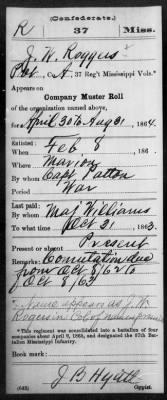 (Confederate.)
R 37 Miss.
J. W. Roggers
Pvt, Co. A, 37 Reg't Mississippi Vols.*
Appears on
Company Muster Roll
of the organization named above,
for April 30 to Aug 31, 1864.
Enlisted:
When Feb 8, 186
Where Marion
By whom Capt. Patton
Period War
Last paid:
By whom Maj Williams
To what time Oct 31, 1863.
Present or absent Present
Remarks: Comutation due
from Oct 8/62 to
Oct 8/63
Name appears as J. W.
*This regiment was consolidated into a battalion of four
companies about April 9, 1865, and designated as the 37th Battalion
Mississippi Infantry.
Book mark:
J B Hyatt
(642) Copyist.